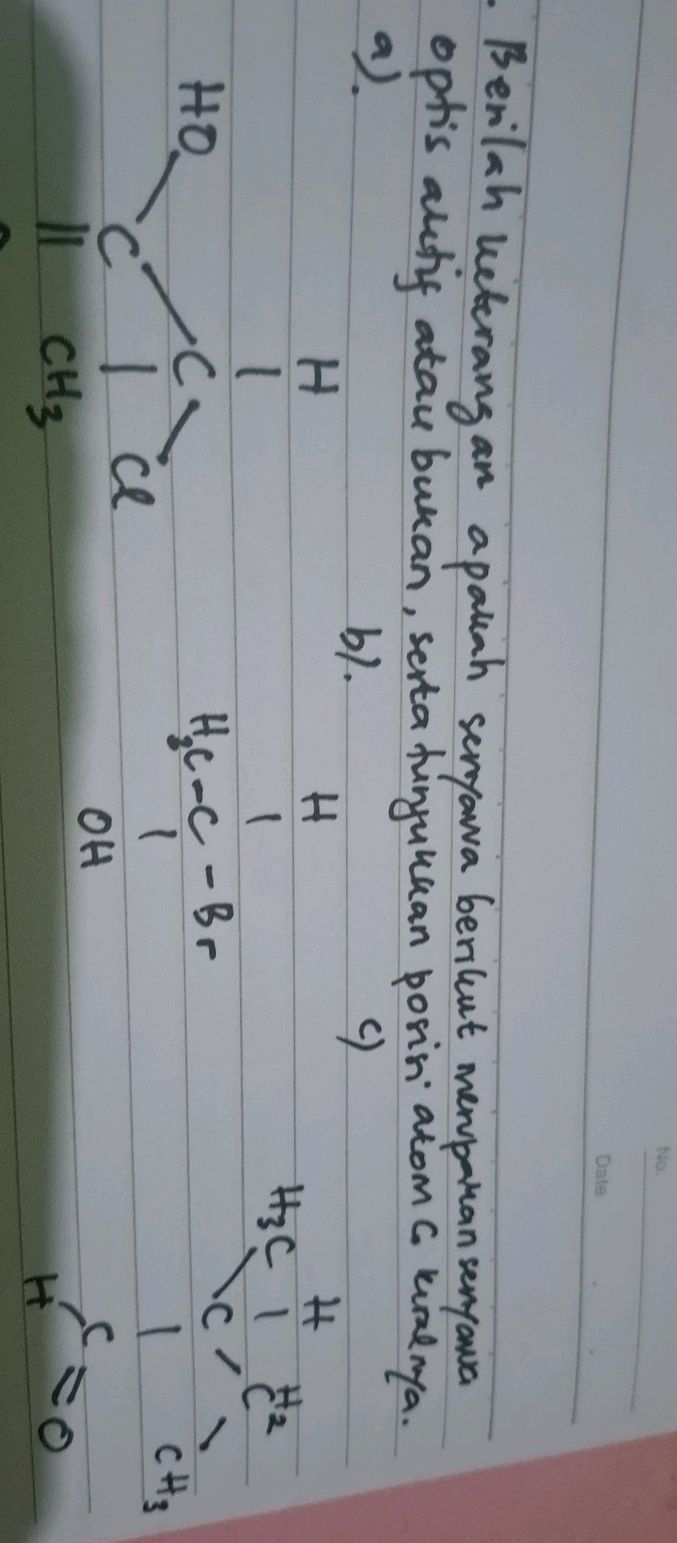 No.
Date
. Berilah keterangan apakah senyawa berikut merupakan senyawa
optis aktif atau bukan, serta tunjukkan posisi atom C kiralnya.
a). b). c)
H H H
H3C C H2
C
HO C Cl H3C-C-Br C CH3
C
CH3 OH C=O
H